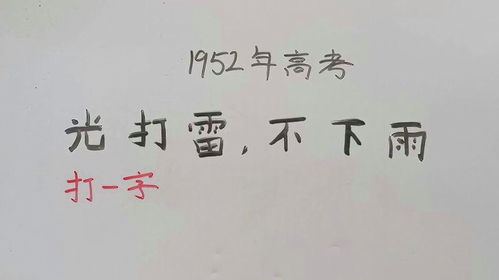 1952年高考
光打雷,不下雨
打一字